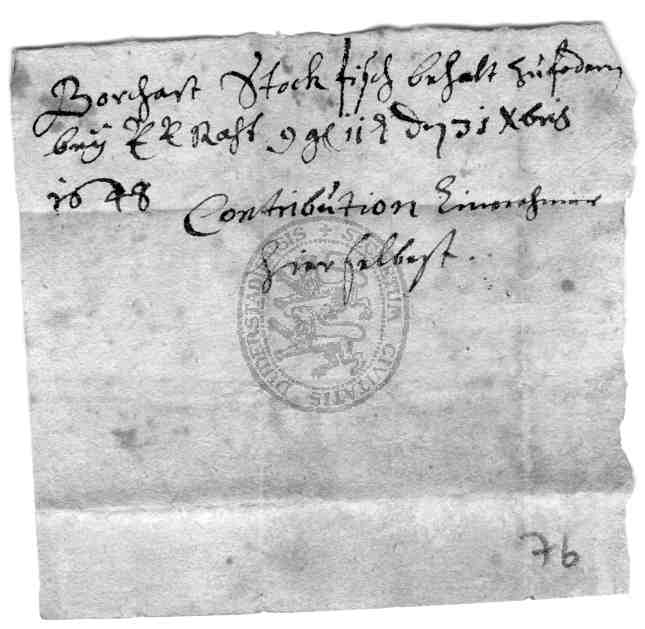 Borchart Stock fisch behalt zufodern
beÿ E E Raht 9 gl 11 ₰ den 31 Xbris
1648 Contribution Einnehmer
hierselbest.
SIGNETUM CIVITATIS DUDERSTADIENSIS
76